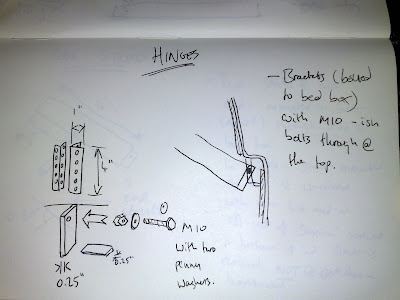 HINGES
- Brackets (bolted
to bed box)
with M10 -ish
bolts through @
the top.
1"
4"
M10
with two
penny
washers.
0.25"
0.25"